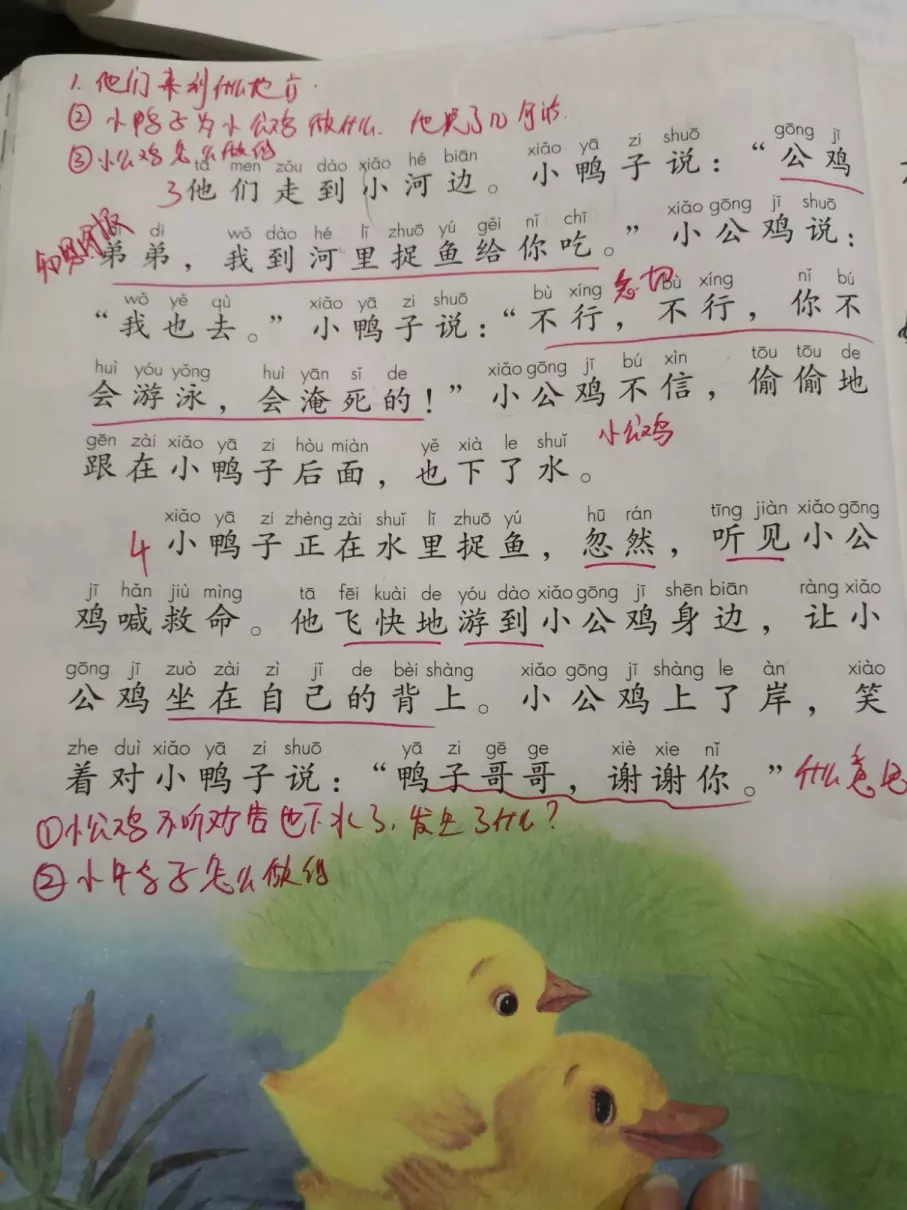 1. 他们来到什么地方.
② 小鸭子为小公鸡做什么. 他说了几句话.
③ 小公鸡怎么做的
tā men zǒu dào xiǎo hé biān xiǎo yā zi shuō gōng jī
3 他们走到小河边。小鸭子说：“公鸡
di wǒ dào hé lǐ zhuō yú gěi nǐ chī xiǎo gōng jī shuō
弟弟，我到河里捉鱼给你吃。”小公鸡说：
wǒ yě qù xiǎo yā zi shuō bù xíng bù xíng nǐ bú
急切
“我也去。”小鸭子说：“不行，不行，你不
huì yóu yǒng huì yān sǐ de xiǎo gōng jī bú xìn tōu tōu de
会游泳，会淹死的！”小公鸡不信，偷偷地
gēn zài xiǎo yā zi hòu miàn yě xià le shuǐ
小公鸡
跟在小鸭子后面，也下了水。
xiǎo yā zi zhèng zài shuǐ lǐ zhuō yú hū rán tīng jiàn xiǎo gōng
4 小鸭子正在水里捉鱼，忽然，听见小公
jī hǎn jiù mìng tā fēi kuài de yóu dào xiǎo gōng jī shēn biān ràng xiǎo
鸡喊救命。他飞快地游到小公鸡身边，让小
gōng jī zuò zài zì jǐ de bèi shàng xiǎo gōng jī shàng le àn xiào
公鸡坐在自己的背上。小公鸡上了岸，笑
zhe duì xiǎo yā zi shuō yā zi gē ge xiè xie nǐ
着对小鸭子说：“鸭子哥哥，谢谢你。”
什么意思
①小公鸡不听劝告也下水了，发生了什么？
②小鸭子怎么做的